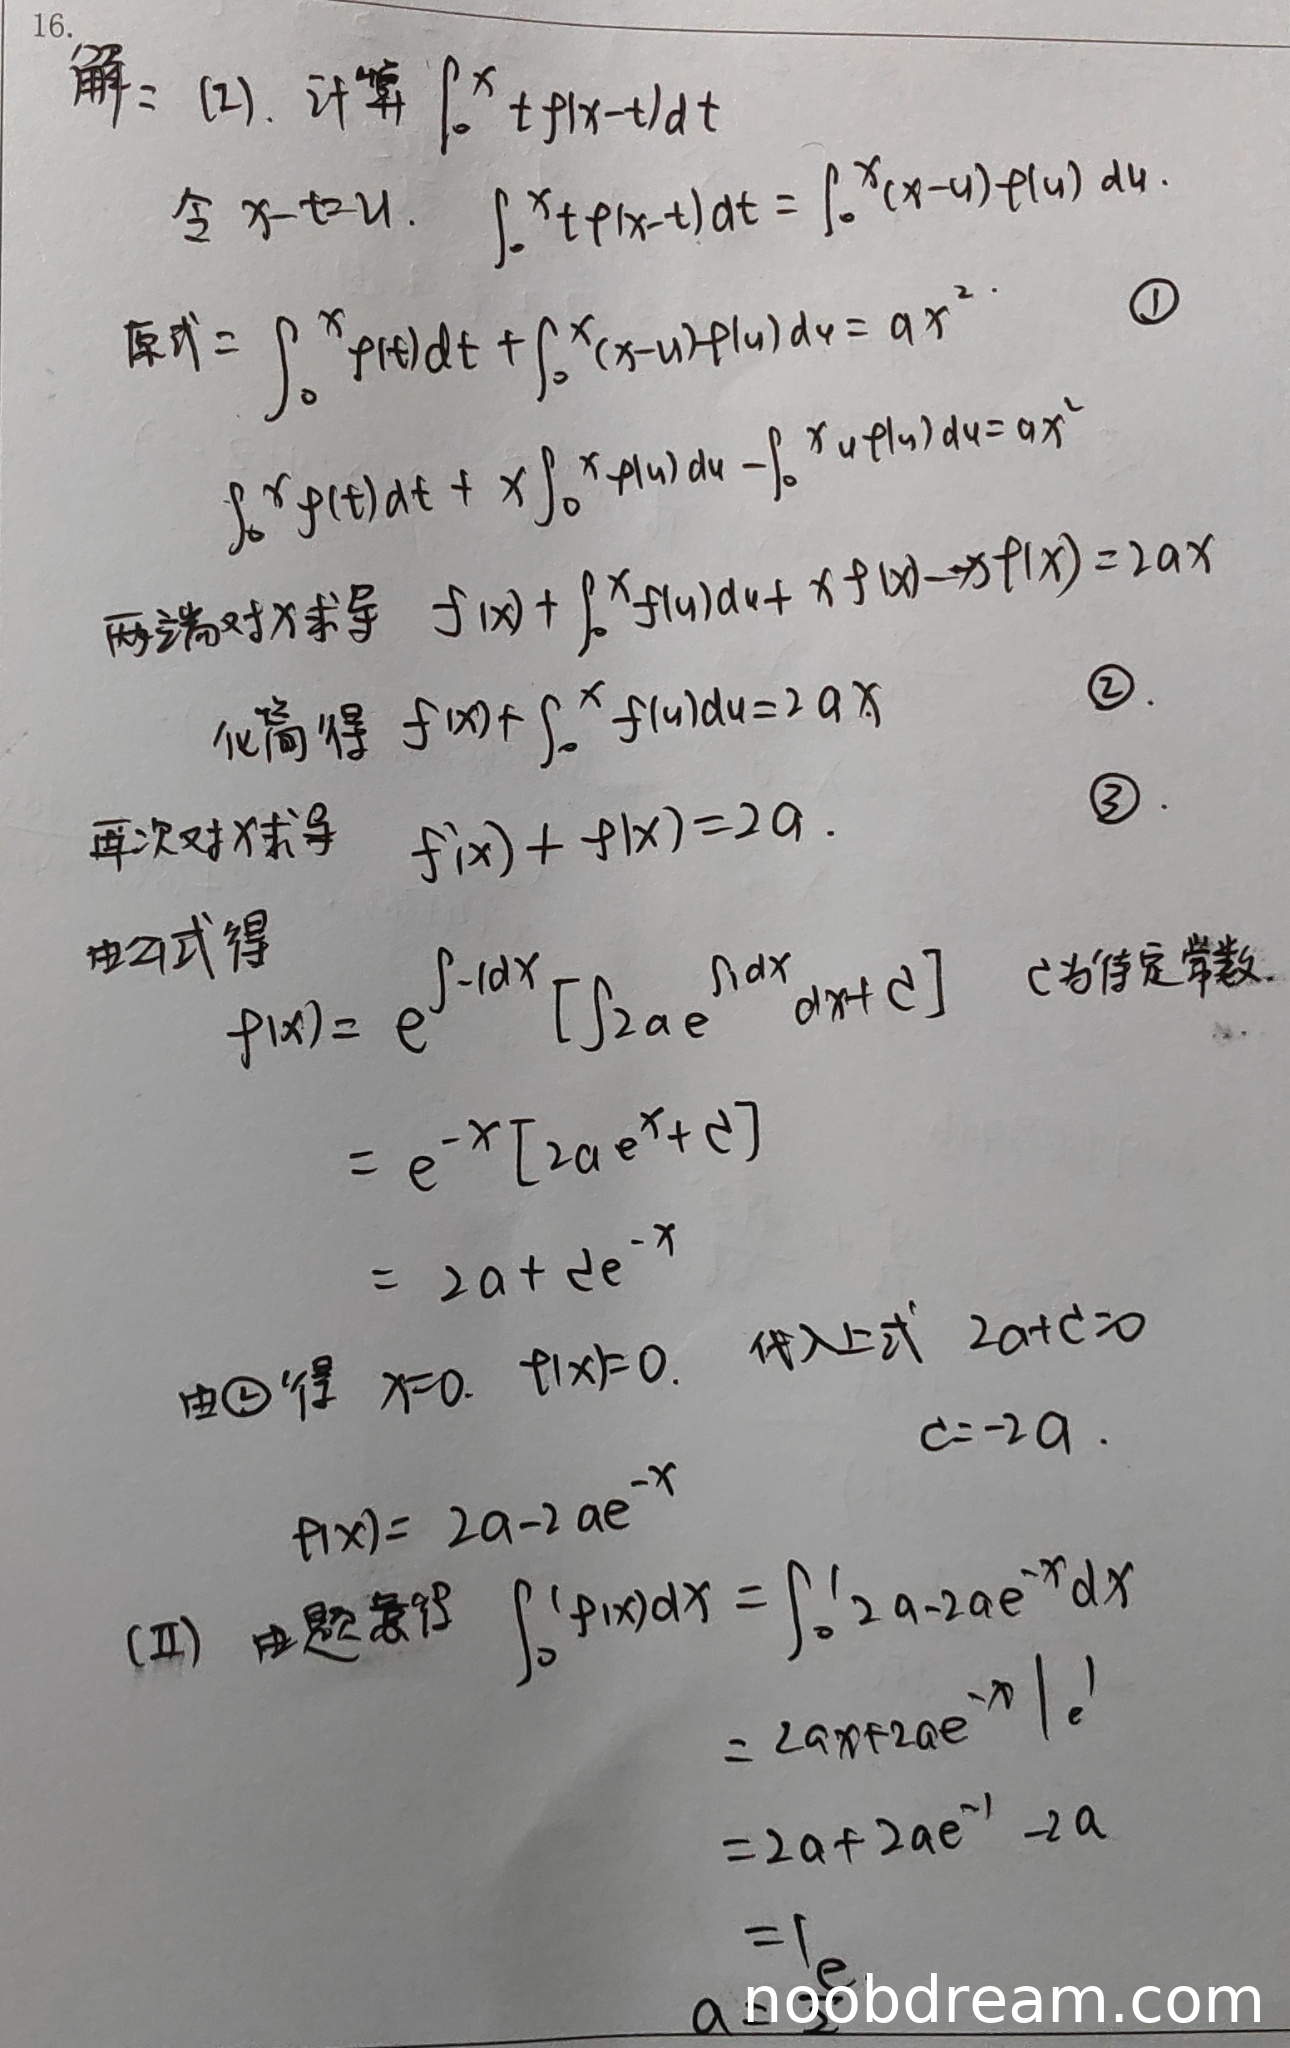 16.
解: (I). 计算 ∫₀ˣ t f(x-t)dt
令 x-t=u. ∫₀ˣ t f(x-t)dt = ∫₀ˣ (x-u) f(u) du.
原式 = ∫₀ˣ f(t)dt + ∫₀ˣ (x-u) f(u) du = ax². ①
∫₀ˣ f(t)dt + x∫₀ˣ f(u) du - ∫₀ˣ u f(u) du = ax²
两端对x求导 f(x) + ∫₀ˣ f(u)du + x f(x) - x f(x) = 2ax
化简得 f(x) + ∫₀ˣ f(u)du = 2ax ②.
再次对x求导 f'(x) + f(x) = 2a. ③.
由 式得
f(x) = e^{∫-1dx} [∫2a e^{∫1dx} dx + C] C为待定常数.
= e^{-x} [2a e^x + C]
= 2a + Ce^{-x}
由②得 x=0. f(x)=0. 代入上式 2a+C=0
C=-2a.
f(x) = 2a-2ae^{-x}
(II) 由题意得 ∫₀¹ f(x)dx = ∫₀¹ 2a-2ae^{-x}dx
= 2ax+2ae^{-x} |₀¹
= 2a+2ae^{-1} -2a
= 1
a = e/2
noobdream.com